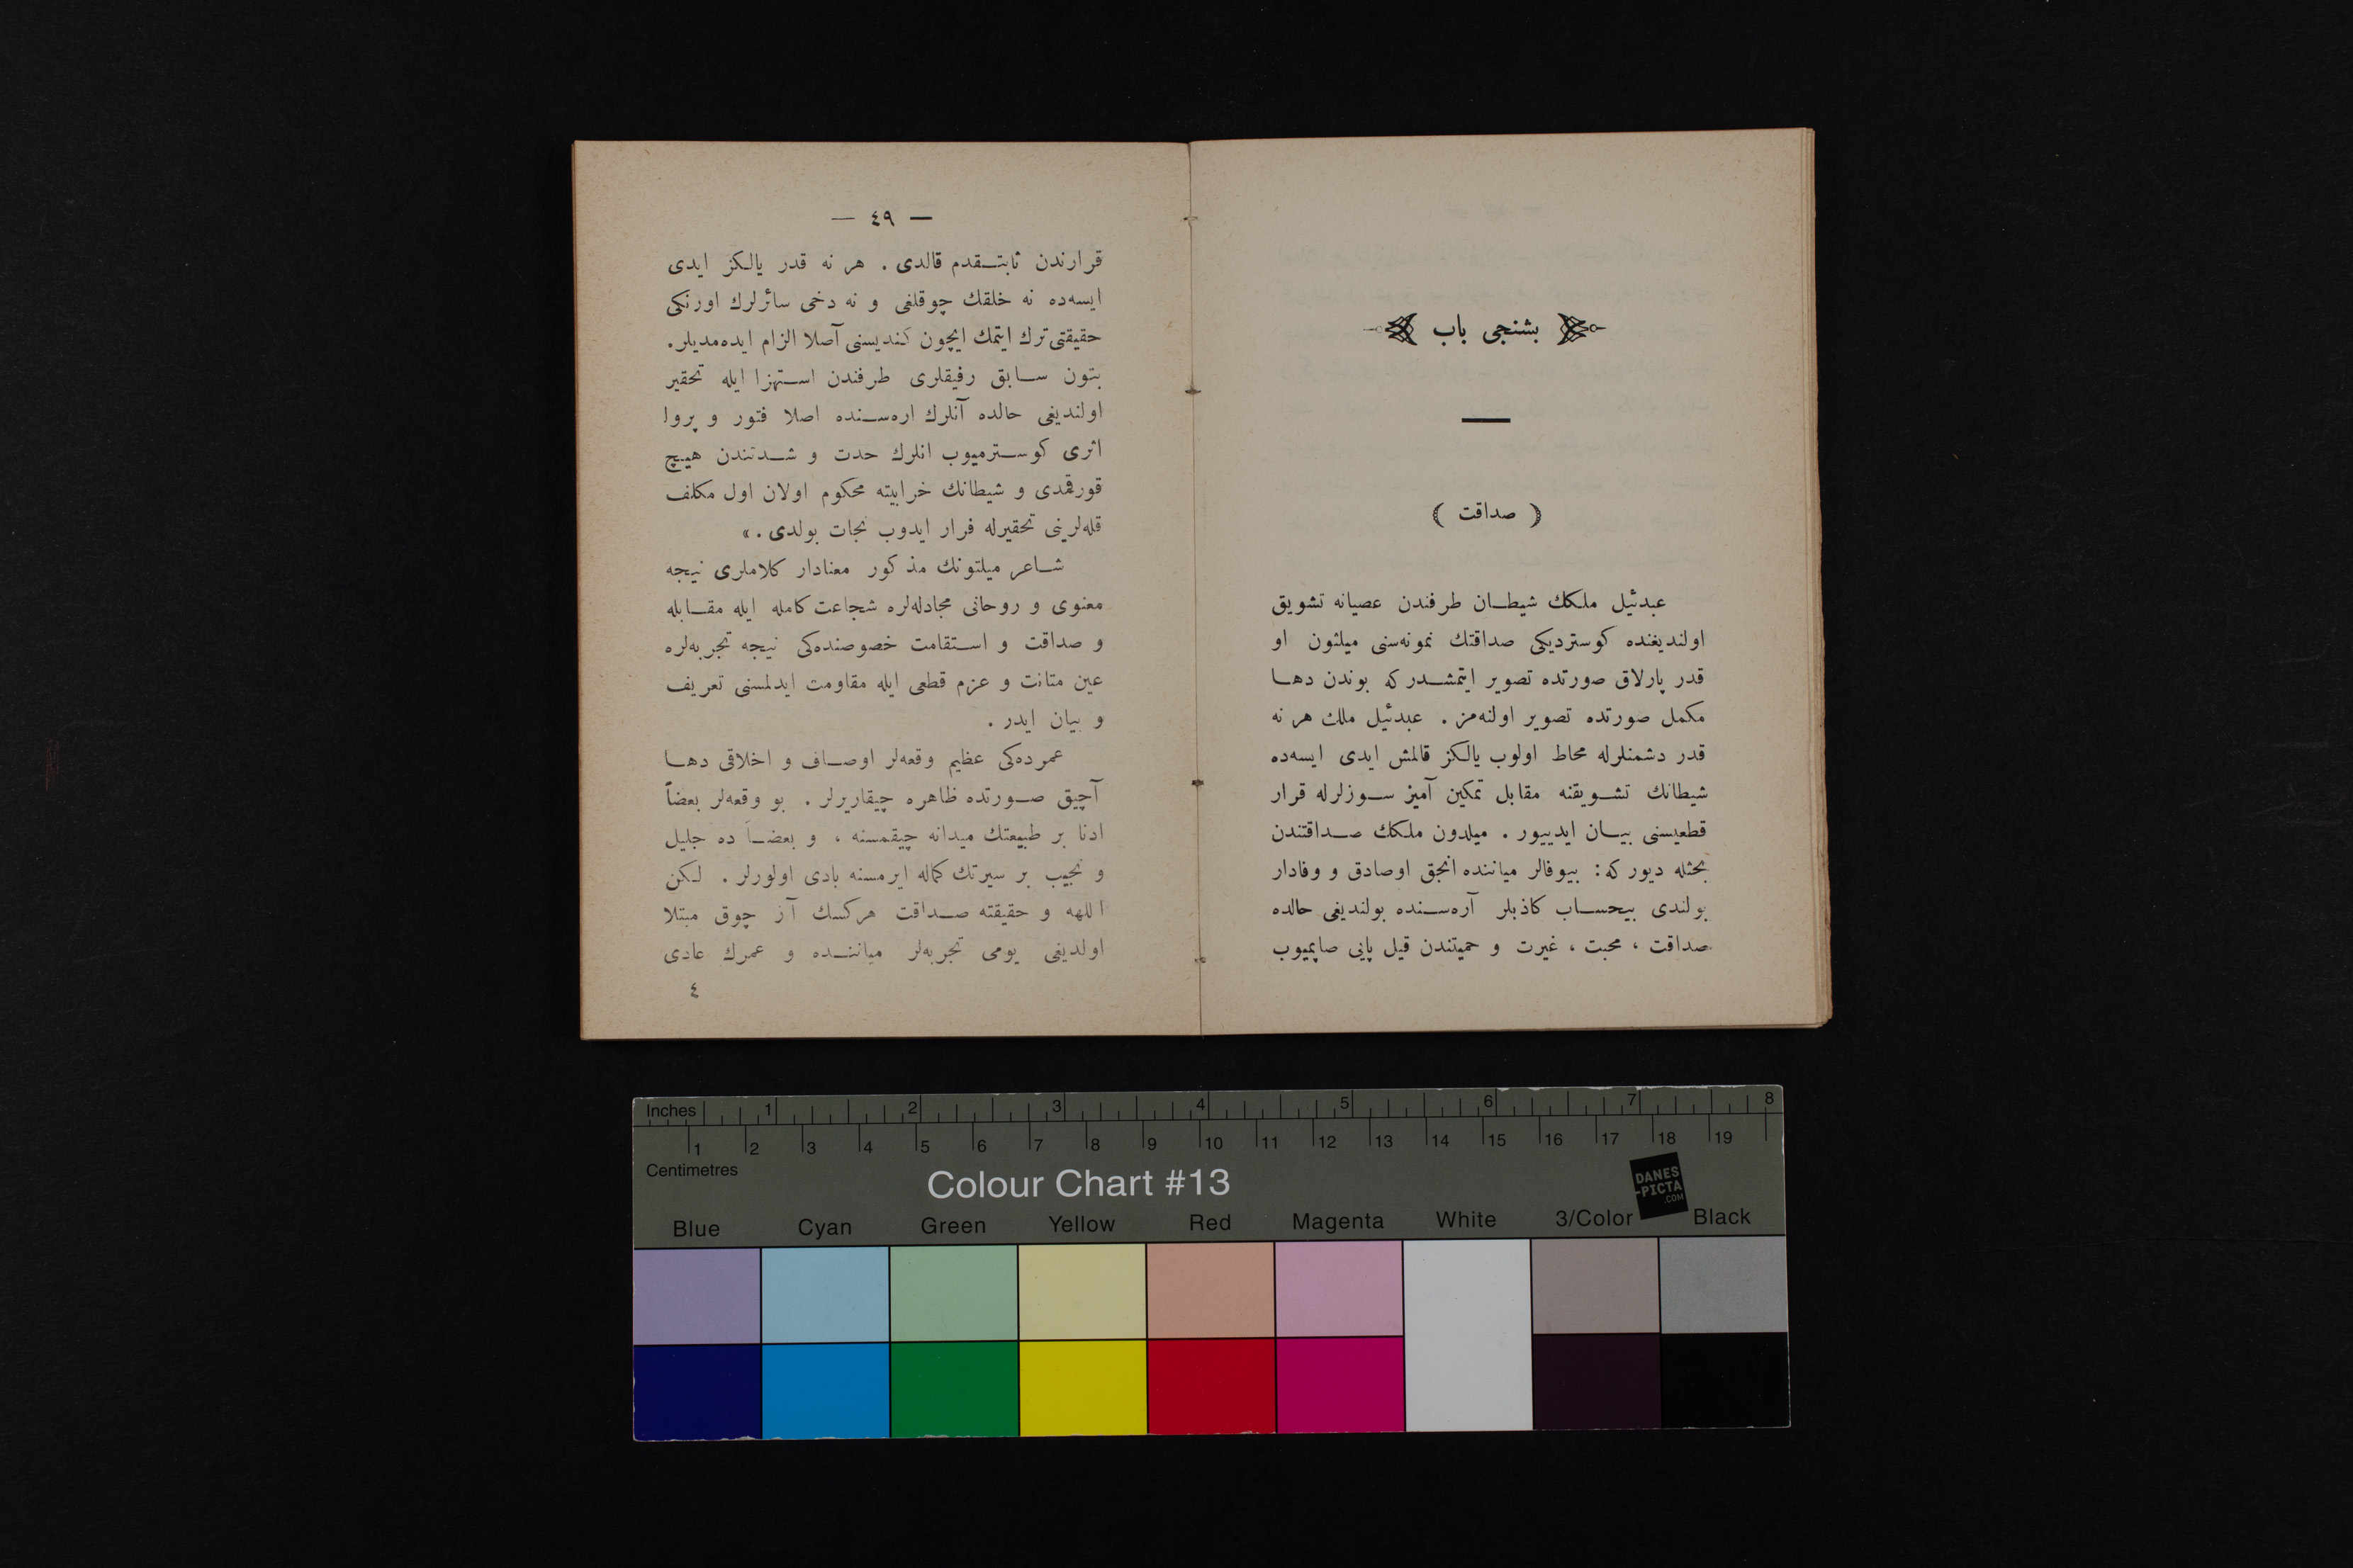 بشنجی باب
( صداقت )
عبدئیل ملكك شیطـان طرفندن عصیانه تشویق
اولندیغنده كوستردیكی صداقتك نمونه‌سنی میلثون او
قدر پارلاق صورتده تصویر ایتمشـدر كه بوندن دهـا
مكمل صورتده تصویر اولنه‌مز . عبدئیل ملك هر نه
قدر دشمنلرله محاط اولوب یالكز قالمش ایدی ایسه‌ده
شیطانك تشـویقنه مقابل تمكین آمیز سـوزلرله قرار
قطعیسنی بیـان ایدییور . میلدون ملكك صـداقتندن
بحثله دیور كه : بیوفالر میاننده انجق اوصادق و وفادار
بولندی بیحسـاب كاذبلر آره‌سـنده بولندیغی حالده
صداقت ، محبت ، غیرت و حمیتندن قیل پایی صاپمیوب
— ٤٩ —
قرارندن ثابتـقدم قالدی . هر نه قدر یالكز ایدی
ایسه‌ده نه خلقك چوقلغی و نه دخی سائرلرك اورنكی
حقیقتی ترك ایتمك ایچون كندیسنی آصلا الزام ایده‌مدیلر .
بتون سـابق رفیقلری طرفندن اسـتهزا ایله تحقیر
اولندیغی حالده آنلرك اره‌سـنده اصلا فتور و پروا
اثری كوسـترمیوب انلرك حدت و شـدتندن هیچ
قورقمدی و شیطانك خرابیته محكوم اولان اول مكلف
قله‌لرینی تحقیرله فرار ایدوب نجات بولدی . »
شـاعر میلتونك مذكور معنادار كلاملری نیجه
معنوی و روحانی مجادله‌لره شجاعت كامله ایله مقـابله
و صداقت و اسـتقامت خصوصنده‌كی نیجه تجربه‌لره
عین متانت و عزم قطعی ایله مقاومت ایدلمسنی تعریف
و بیان ایدر .
عمرده‌كی عظیم وقعه‌لر اوصـاف و اخلاقی دهـا
آچیق صـورتده ظاهره چیقاریرلر . بو وقعه‌لر بعضاً
ادنا بر طبیعتك میدانه چیقمسنه ، و بعضـاً ده جلیل
و نجیب بر سیرتك كماله ایرمسنه بادی اولورلر . لـكن
اللهه و حقیقته صـداقت هركسك آز چوق مبتلا
اولدیغی یومی تجربه‌لر میاننـده و عمرك عادی
٤
Inches 1 2 3 4 5 6 7 8
1 2 3 4 5 6 7 8 9 10 11 12 13 14 15 16 17 18 19
Centimetres
Colour Chart #13
DANES
-PICTA
.COM
Blue Cyan Green Yellow Red Magenta White 3/Color Black